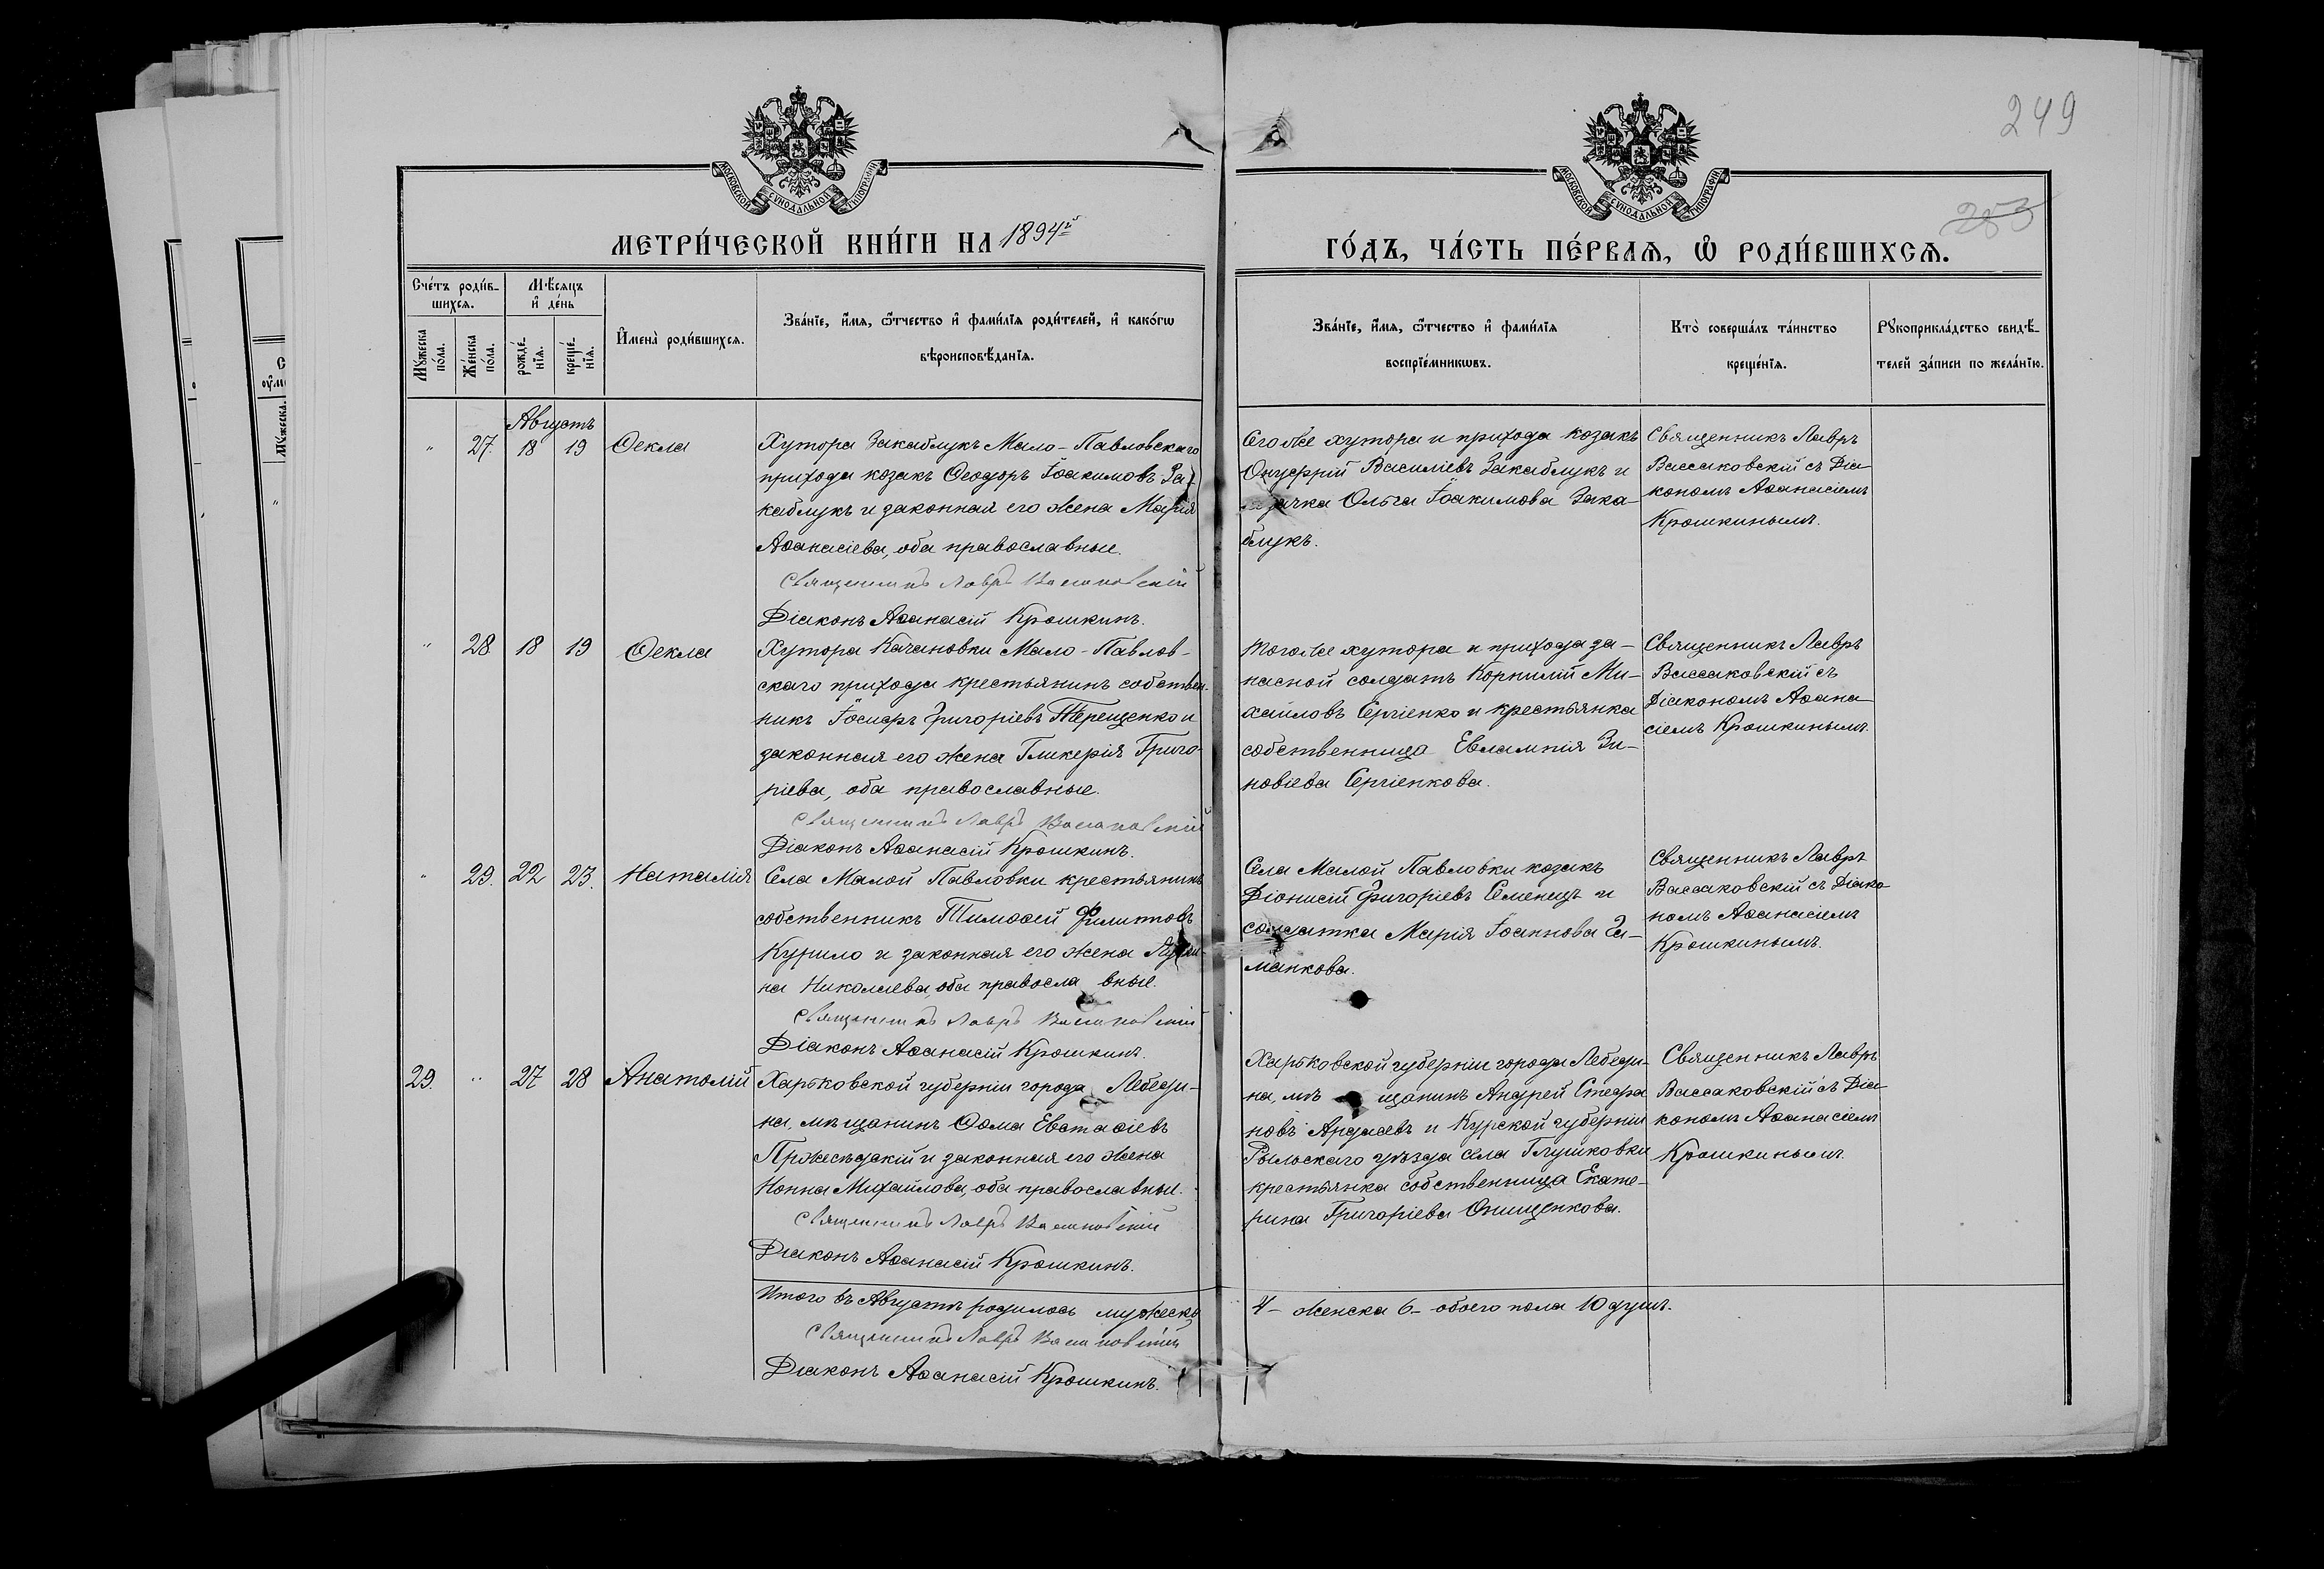 249
253
МОСКОВСКОЙ СУНОДАЛЬНОЙ ТИПОГРАФІИ
МОСКОВСКОЙ СУНОДАЛЬНОЙ ТИПОГРАФІИ
МЕТРИ́ЧЕСКОЙ КНИ́ГИ НА 1894й
ГО́ДЪ, ЧА́СТЬ ПЕ́РВАЯ, Ѡ РОДИ́ВШИХСЯ.
Сче́тъ роди́в-
шихся.
Мѣсяцъ
и де́нь
Мꙋжеска по́ла.
Же́нска по́ла.
рожде́-
нїя.
креще́-
нїя.
Имена̀ роди́вшихся.
Зва́нїе, и́мя, ѻ́тчество и фами́лїя роди́телей, и како́гѡ
вѣроисповѣ́данїя.
Зва́нїе, и́мя, ѻ́тчество и фами́лїя
воспрїе́мникѡвъ.
Кто̀ соверша́лъ та́инство
креще́нїя.
Рꙋкоприкла́дство свидѣ́-
телей за́писи по жела́нїю.
Августъ
" 27. 18 19 Ѳекла
Хутора Закаблукъ Мало-Павловскаго
прихода козакъ Ѳеодоръ Іоакимовъ За-
каблукъ и законная его жена Марія
Аѳанасіева, оба православные.
Священникъ Лавръ Вассаковскій
Діаконъ Аѳанасій Крошкинъ.
Того же хутора и прихода козакъ
Онуфрій Василіевъ Закаблукъ и
козачка Ольга Іоакимова Зака-
блукъ.
Священникъ Лавръ
Вассаковскій съ Діа-
кономъ Аѳанасіемъ
Крошкинымъ.
" 28 18 19 Ѳекла
Хутора Качановки Мало-Павлов-
скаго прихода крестьянинъ собствен-
никъ Іосифъ Григоріевъ Терещенко и
законная его жена Гликерія Григо-
ріева, оба православные.
Священникъ Лавръ Вассаковскій
Діаконъ Аѳанасій Крошкинъ.
Того же хутора и прихода за-
пасной солдатъ Корнилій Ми-
хайловъ Сергіенко и крестьянка
собственница Евлампія Зи-
новіева Сергіенкова.
Священникъ Лавръ
Вассаковскій съ
Діакономъ Аѳана-
сіемъ Крошкинымъ.
" 29. 22 23. Наталія
Села Малой Павловки крестьянинъ
собственникъ Тимоѳей Филиповъ
Курило и законная его жена
на Николаева, оба православные.
Священникъ Лавръ Вассаковскій
Діаконъ Аѳанасій Крошкинъ.
Села Малой Павловки козакъ
Діонисій Григоріевъ Семенецъ и
солдатка Марія Іоаннова
манкова.
Священникъ Лавръ
Вассаковскій съ Діако-
номъ Аѳанасіемъ
Крошкинымъ.
29. " 27 28 Анатолій
Харьковской губерніи города Лебеди-
на, мѣщанинъ Ѳома Евстаѳіевъ
и законная его жена
Нонна Михайлова, оба православные.
Священникъ Лавръ Вассаковскій
Діаконъ Аѳанасій Крошкинъ.
Харьковской губерніи города Лебеди-
на, мѣщанинъ Андрей Стефа
новъ и Курской губерніи
Рыльскаго уѣзда села Глушковки
крестьянка собственница Екате-
рина Григоріева Онищенкова.
Священникъ Лавръ
Вассаковскій съ Діа-
кономъ Аѳанасіемъ
Крошкинымъ.
Итого въ Августѣ родилось мужеска
4- женска 6- обоего пола 10 душъ.
Священникъ Лавръ Вассаковскій
Діаконъ Аѳанасій Крошкинъ.